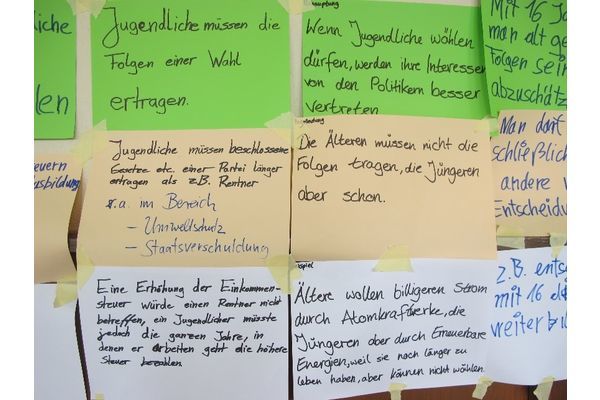 iche
len
Jugendliche müssen die
Folgen einer Wahl
ertragen.
Behauptung
Wenn Jugendliche wählen
dürfen, werden ihre Interessen
von den Politikern besser
vertreten
Mit 16 Ja
man alt ge
Folgen sein
abzuschätz
euern
usbildung
Jugendliche müssen beschlossene
Gesetze etc. einer Partei länger
ertragen als z.B. Rentner
s.a. im Bereich
- Umweltschutz
- Staatsverschuldung
Die Älteren müssen nicht die
Folgen tragen, die Jüngeren
aber schon.
Man darf
schließlich
andere w
Entscheidu
Eine Erhöhung der Einkommen-
steuer würde einen Rentner nicht
betreffen, ein Jugendlicher müsste
jedoch die ganzen Jahre, in
denen er arbeiten geht die höhere
Steuer bezahlen.
ispiel
Ältere wollen billigeren Strom
durch Atomkraftwerke, die
Jüngeren aber durch Erneuerbare
Energien, weil sie noch länger zu
leben haben, aber können nicht wählen.
z.B. ents
mit 16 di
weiter b